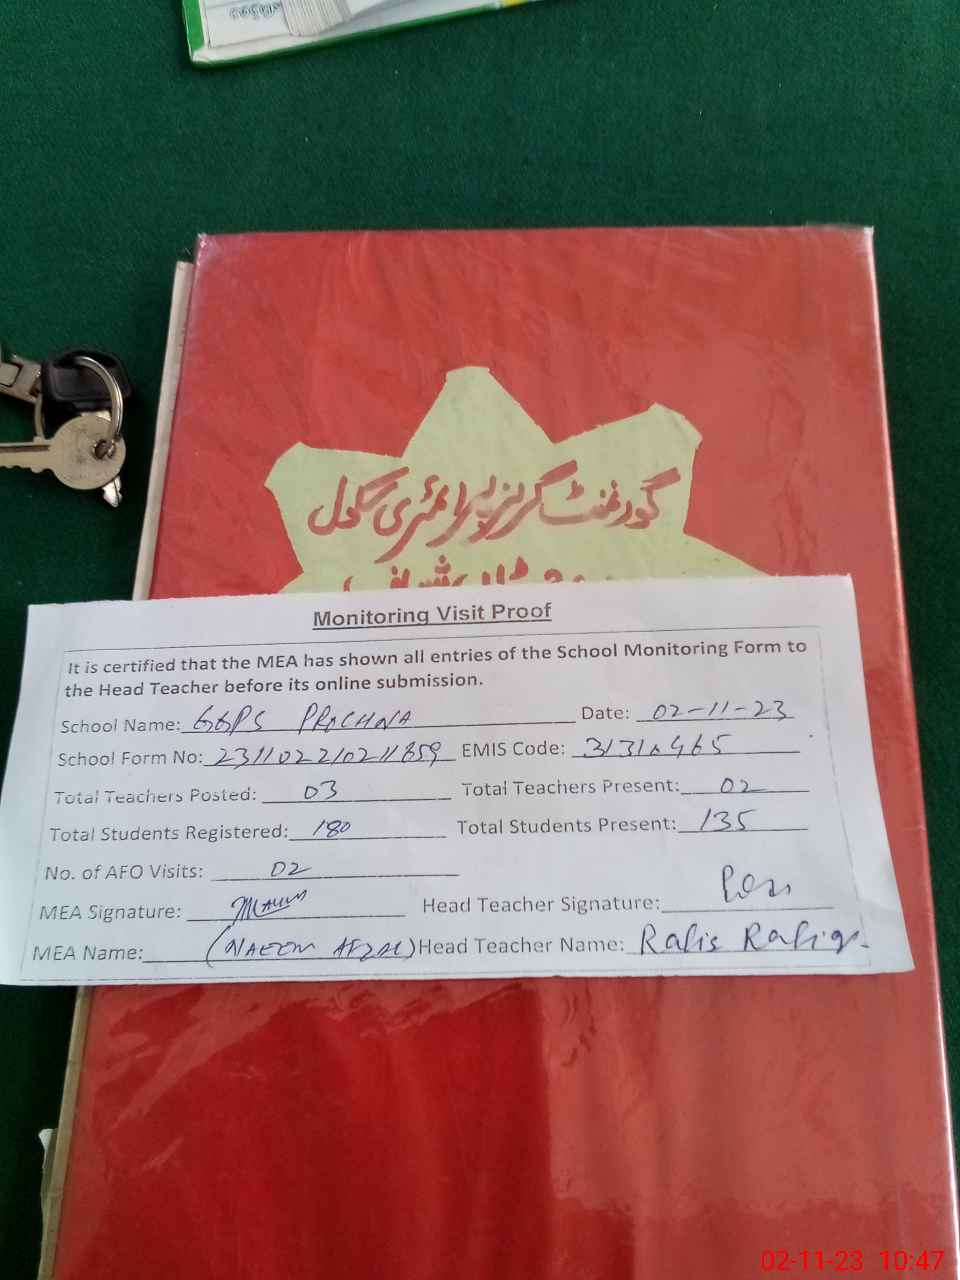 گورنمنٹ گرلز پرائمری سکول
Monitoring Visit Proof
It is certified that the MEA has shown all entries of the School Monitoring Form to
the Head Teacher before its online submission.
School Name: GGPS PROCHNA Date: 02-11-23
School Form No: 231102210211859 EMIS Code: 31310465
Total Teachers Posted: 03 Total Teachers Present: 02
Total Students Registered: 180 Total Students Present: 135
No. of AFO Visits: 02
MEA Signature: Head Teacher Signature:
MEA Name: (NAEEM AFZAL) Head Teacher Name: Rafis Rafiq
02-11-23 10:47